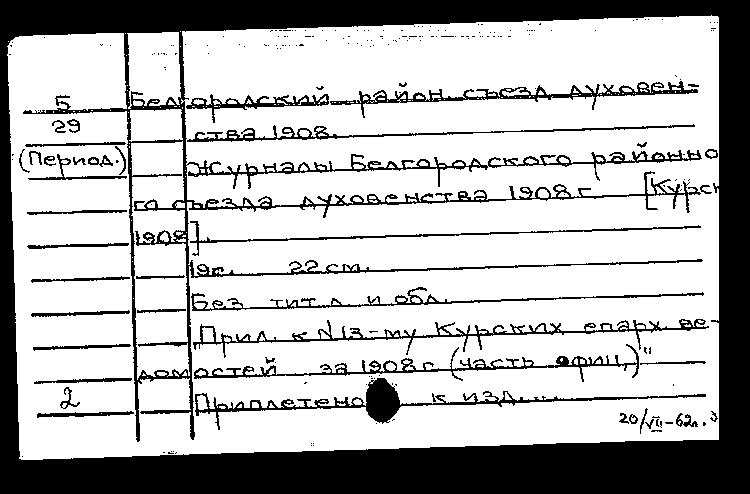 5 Белгородский район. съезд духовен-
29 ства 1908.
(Период.) Журналы Белгородского районно
го съезда духовенства 1908 г. [Курск
1908].
19с. 22 см.
Без тит. л. и обл.
"Прил. к N 13-му Курских епарх. ве-
домостей за 1908 г (часть офиц.)"
2 Приплетено к изд....
20/VII-62г.